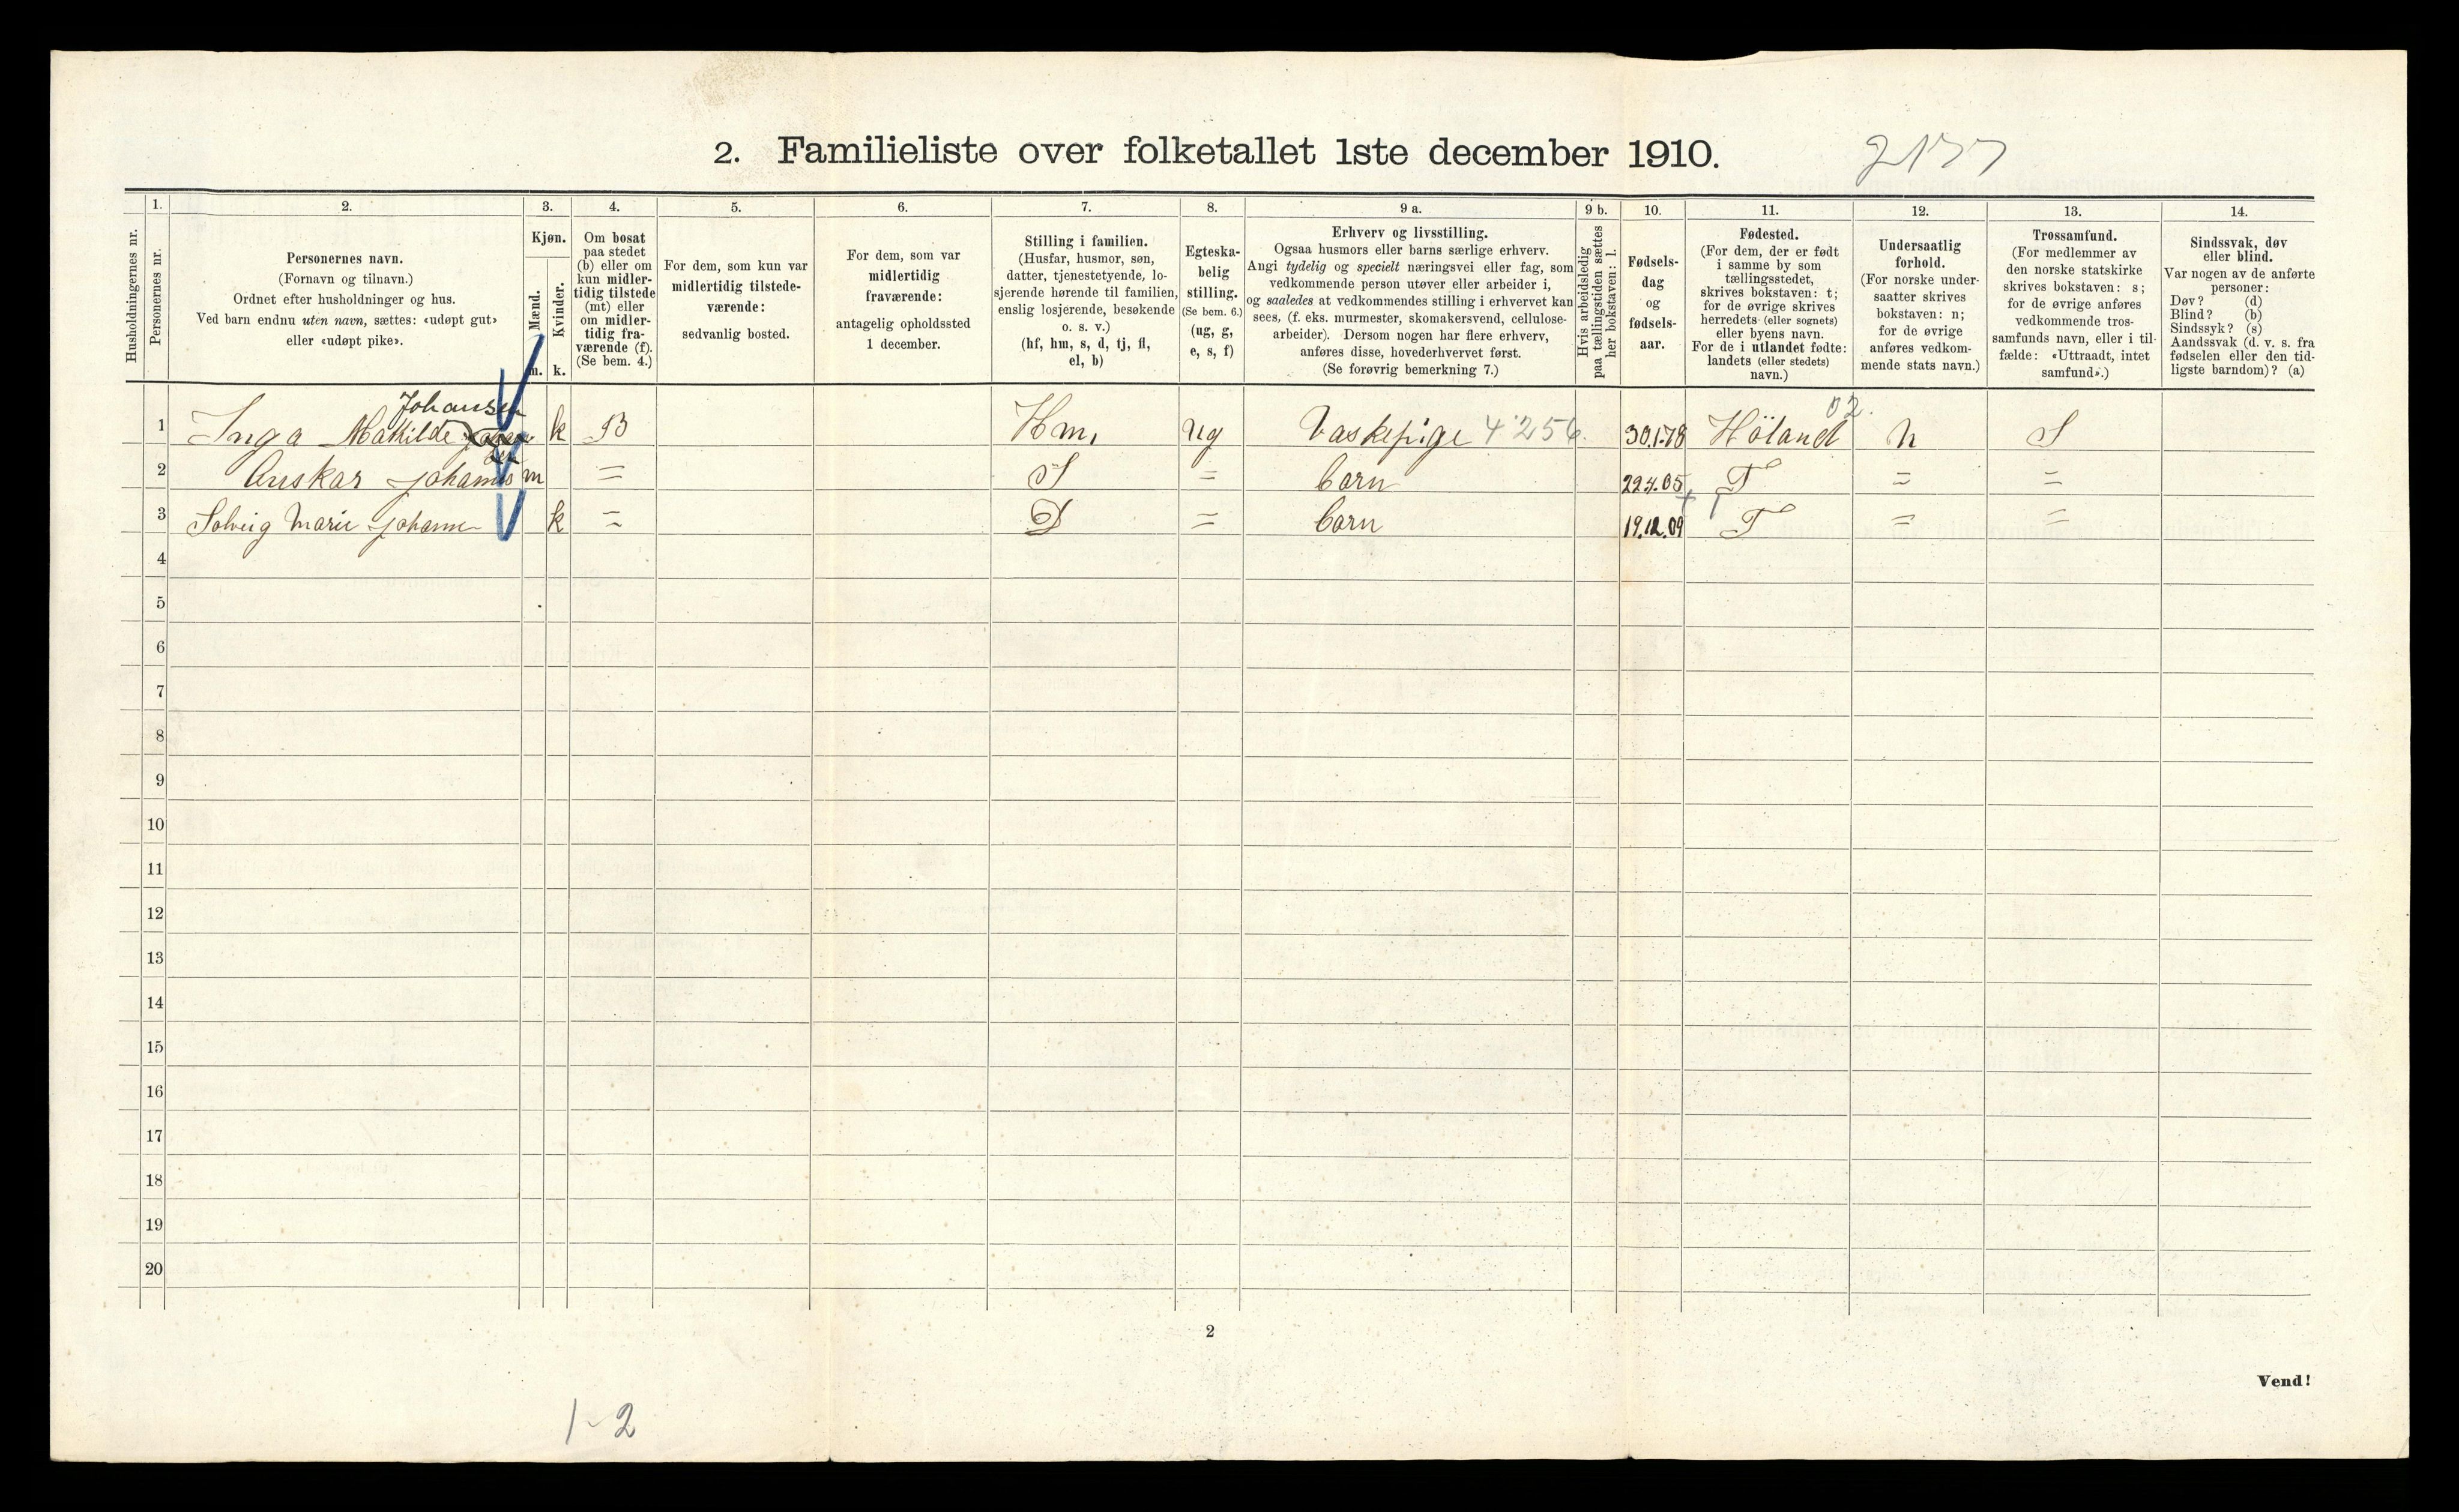 2. Familieliste over folketallet 1ste december 1910.
Husholdningernes nr.
1.
Personernes nr.
2.
Personernes navn.
(Fornavn og tilnavn.)
Ordnet efter husholdninger og hus.
Ved barn endnu uten navn, sættes: «udøpt gut»
eller «udøpt pike».
3.
Kjøn.
Mænd.
Kvinder.
m. k.
4.
Om bosat
paa stedet
(b) eller om
kun midler-
tidig tilstede
(mt) eller
om midler-
tidig fra-
værende (f).
(Se bem. 4.)
5.
For dem, som kun var
midlertidig tilstede-
værende:
sedvanlig bosted.
6.
For dem, som var
midlertidig
fraværende:
antagelig opholdssted
1 december.
7.
Stilling i familien.
(Husfar, husmor, søn,
datter, tjenestetyende, lo-
sjerende hørende til familien,
enslig losjerende, besøkende
o. s. v.)
(hf, hm, s, d, tj, fl,
el, b)
8.
Egteska-
belig
stilling.
(Se bem. 6.)
(ug, g,
e, s, f)
9 a.
Erhverv og livsstilling.
Ogsaa husmors eller barns særlige erhverv.
Angi tydelig og specielt næringsvei eller fag, som
vedkommende person utøver eller arbeider i,
og saaledes at vedkommendes stilling i erhvervet kan
sees, (f. eks. murmester, skomakersvend, cellulose-
arbeider). Dersom nogen har flere erhverv,
anføres disse, hovederhvervet først.
(Se forøvrig bemerkning 7.)
9 b.
Hvis arbeidsledig
paa tællingstiden sættes
her bokstaven: l.
10.
Fødsels-
dag
og
fødsels-
aar.
11.
Fødested.
(For dem, der er født
i samme by som
tællingsstedet,
skrives bokstaven: t;
for de øvrige skrives
herredets (eller sognets)
eller byens navn.
For de i utlandet fødte:
landets (eller stedets)
navn.)
12.
Undersaatlig
forhold.
(For norske under-
saatter skrives
bokstaven: n;
for de øvrige
anføres vedkom-
mende stats navn.)
13.
Trossamfund.
(For medlemmer av
den norske statskirke
skrives bokstaven: s;
for de øvrige anføres
vedkommende tros-
samfunds navn, eller i til-
fælde: «Uttraadt, intet
samfund».)
14.
Sindssvak, døv
eller blind.
Var nogen av de anførte
personer:
Døv? (d)
Blind? (b)
Sindssyk? (s)
Aandssvak (d. v. s. fra
fødselen eller den tid-
ligste barndom)? (a)
Johansen
02.
1 Inga Matilde k B Hm, ug Vaskepige 4256. 30.1.78 Höland n S
2 Anskar Johansen m = S = barn 22.4.05 T = =
3 Solveig Marie Johann k = D = barn 19.12.09 T = =
4
5
6
7
8
9
10
11
12
13
14
15
16
17
18
19
20
2
Vend!
1-2